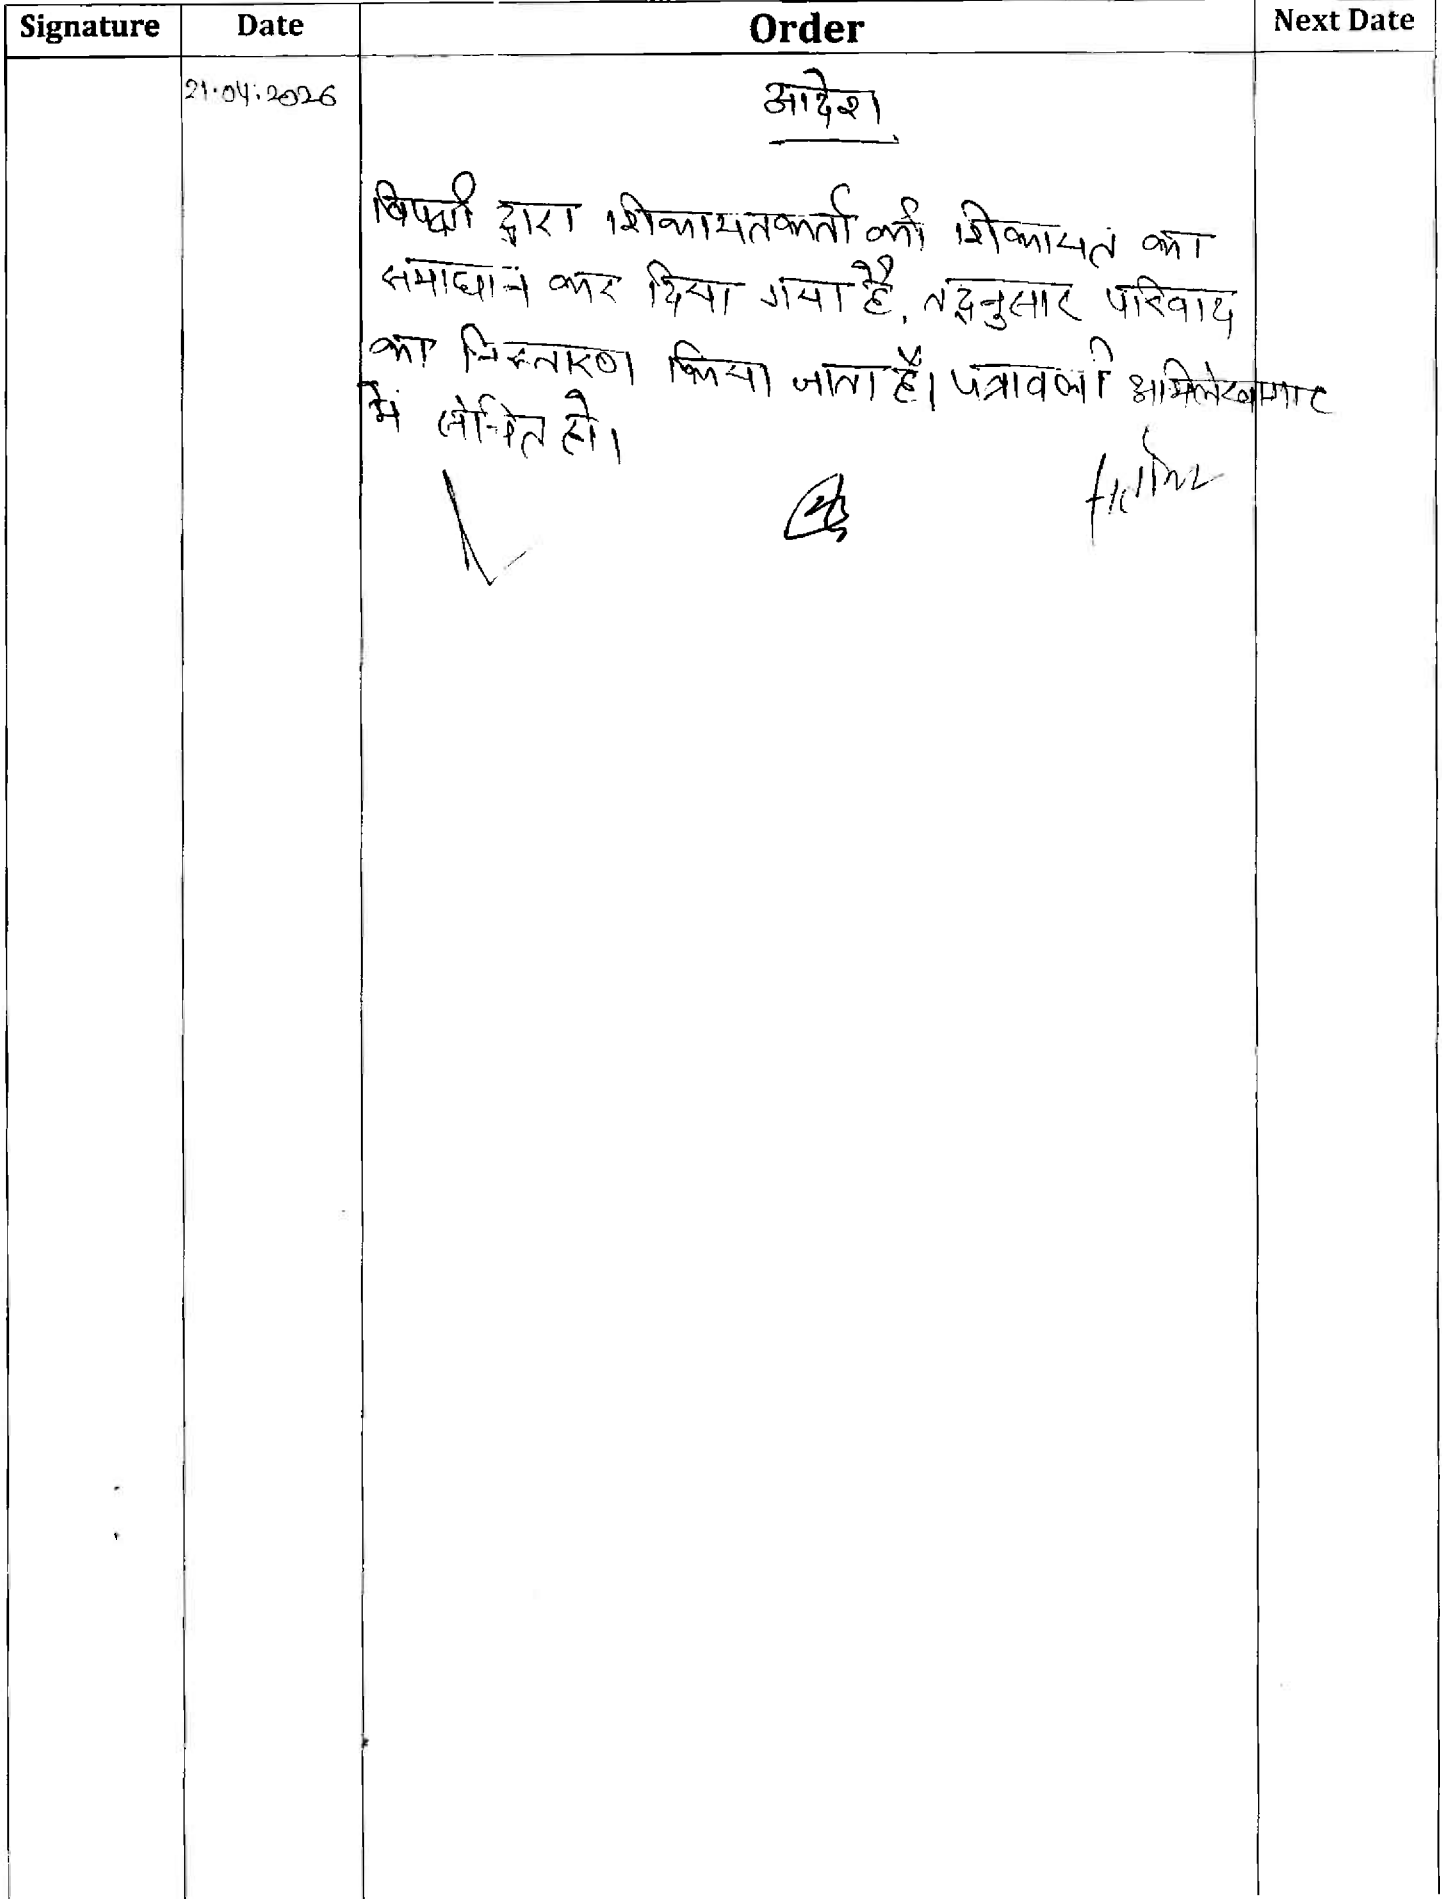 Signature Date Order Next Date
21.04.2026 आदेश
विपक्षी द्वारा शिकायतकर्ता की शिकायत का
समाधान कर दिया गया है, तद्नुसार परिवाद
का निस्तारण किया जाता है। पत्रावली अभिलेखागार
में संचित हो।